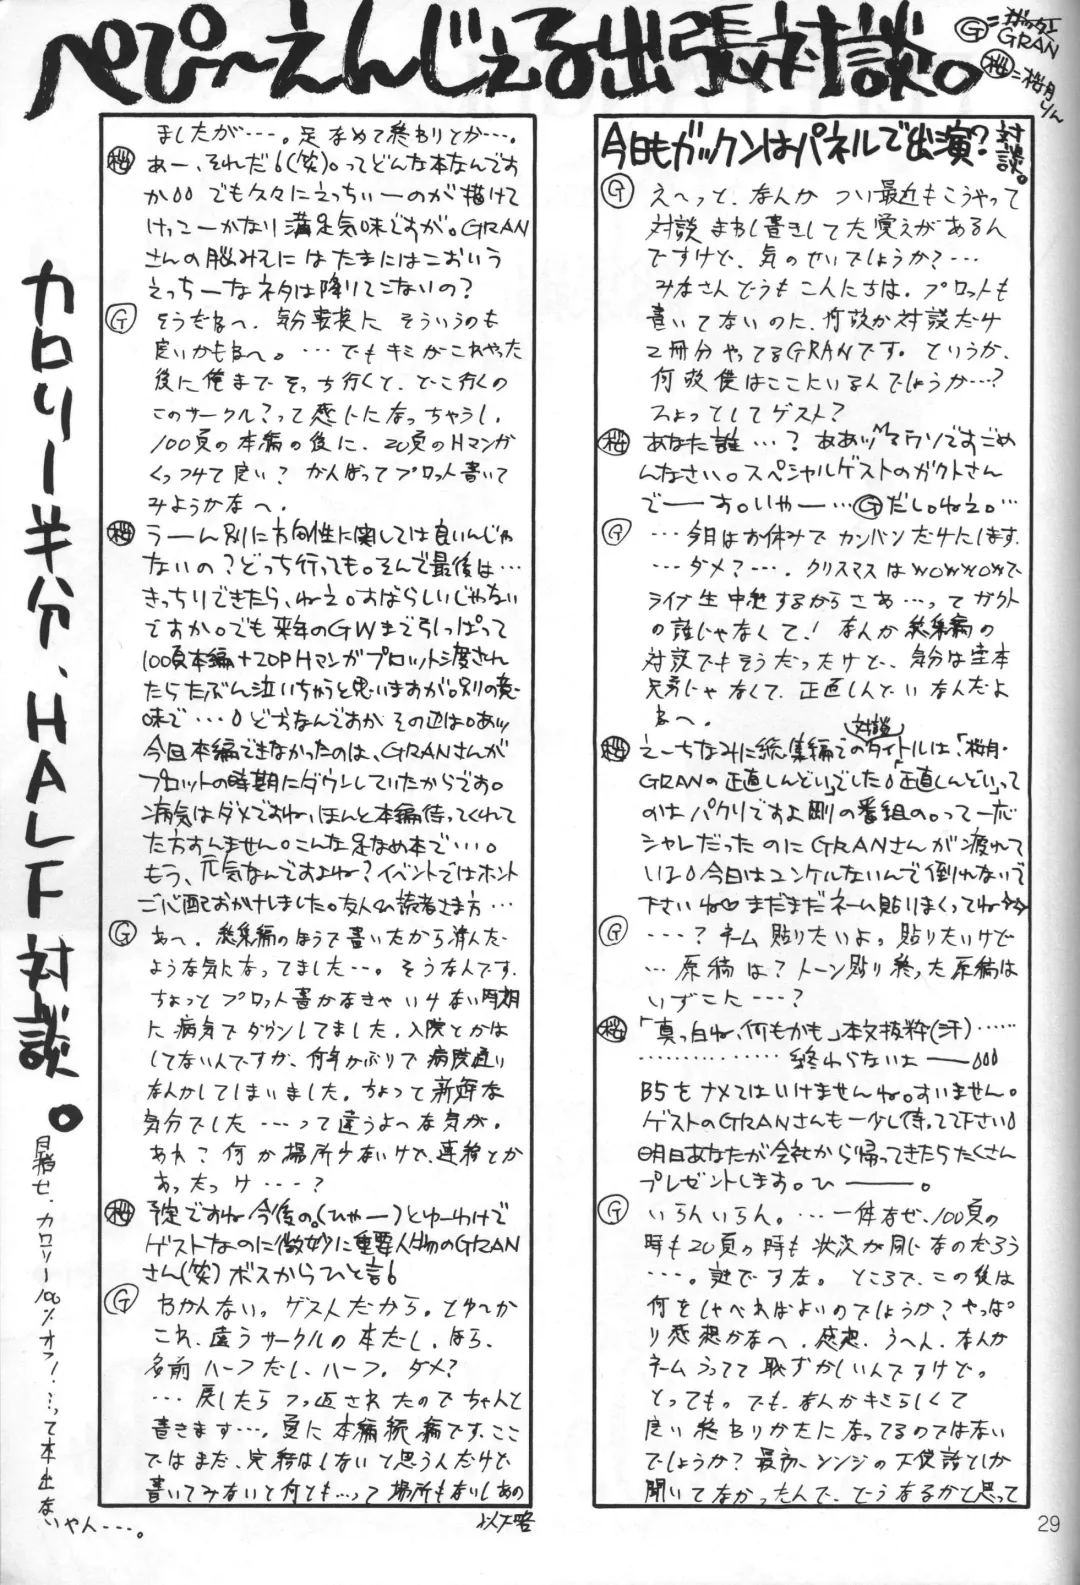 ぺぴ〜えんじぇる出張対談。
Ⓖ=ガックンGRAN
桜=桜月りん
カロリー半分、HALF対談。
目指せ、カロリー100%オフ!…って本出ないやん…。
今日もガックンはパネルで出演?対談。
Ⓖ えへっと、なんか つい最近もこうやって
対談 まわし書きしてた覚えがあるん
ですけど、気のせいでしょうか?…
みなさんどうもこんにちは。プロットも
書いてないのに、何故か対談だけ
2冊分やってるGRANです。というか、
何故僕はここにいるんでしょうか…?
ひょっとしてゲスト?
桜 あなた誰…? ああッ ウソですごめ
んなさい。スペシャルゲストのガクトさん
でーーす。いやー…Ⓖだし。ねえ。…
Ⓖ …今月はお休みで カンバンだけにします。
…ダメ?…. クリスマスはWOWWOWで
ライブ生中継するからさあ…って ガクト
の誰じゃなくて! なんか総集編の
対談でもそうだったけど、気分は堂本
兄弟じゃなくて、正直しんどい なんだよ
なへ。
桜 えーちなみに総集編での対談タイトルは「桜月・
GRANの正直しんどい」でした。「正直しんどい」って
のはパクリですよ剛の番組の。って一応
シャレだったのにGRANさんが疲れて
いる。今日はユンケルないんで倒れないで
下さいね♡まだまだネーム貼りまくってね
Ⓖ …?ネーム貼りたいよ。貼りたいけど
…原稿は?トーン貼り終った原稿は
いずこに…?
桜 「真っ白ね、何もかも」本文抜粋(汗)……
……………終わらないよ――
B5をナメてはいけませんね。すいません。
ゲストのGRANさんも一少し待って下さい。
明日あなたが会社から帰ってきたらたくさん
プレゼントします。ひ――。
Ⓖ いらんいらん。…一体なぜ、100頁の
時も20頁の時も状況が同じなのだろう
…。謎ですな。ところで、この後は
何をしゃべればよいのでしょうか?やっぱ
り感想かなへ。感想、うへん、なんか
ネームうってて恥ずかしいんですけど。
とっても。でも、なんかキミらしくて
良い終わりかたになってるのではない
でしょうか?最初、シンジの天使話としか
聞いてなかったんで、どうなるかと思って
ましたが…。足なめて終わりとか…。
桜 あー、それだ!(笑)。ってどんな本なんです
か でも久々にえっちぃーのが描けて
けっこーかなり満足気味ですが。GRAN
さんの脳みそにはたまにはこおいう
えっちーなネタは降りてこないの?
Ⓖ そうだなへ、気分転換に そういうのも
良いかもなへ。…でもキミがこれやった
後に俺までそっち行くと、どこ行くの
このサークル?って感じになっちゃうし、
100頁の本編の後に、20頁のHマンガ
くっつけて良い? がんばってプロット書いて
みようかなへ。
桜 うーーん別に方向性に関しては良いんじゃ
ないの?どっち行っても。そんで最後は…
きっちりできたら、ねえ。すばらしいじゃない
ですか。でも来年のGWまで引っぱって
100頁本編+20PHマンガプロット渡され
たらたぶん泣いちゃうと思いますが。別の意
味で…。どおなんですかその辺は。あッ
今回本編できなかったのは、GRANさんが
プロットの時期にダウンしていたからです。
病気はダメですね、ほんと本編待っててくれて
た方すんません。こんな足なめ本で…。
もう、元気なんですよね?イベントではホント
ご心配おかけしました。友人&読者さま方…
Ⓖ あへ。総集編のほうで書いたから済んだ
ような気になってました…。そうなんです、
ちょっと プロット書かなきゃ いけない時期
に病気でダウンしてました。入院とかは
してないんですが、何年かぶりで病院通い
なんかしてしまいました。ちょっと新鮮な
気分でした…って違うよへな気が。
あれ? 何か場所少ないけど、連絡とか
あったっけ…?
桜 予定ですね今後の。(ひゃー)とゆーわけで
ゲストなのに微妙に重要人物のGRAN
さん(笑)ボスからひと言!
Ⓖ わかんない。ゲストだから。とゆ〜か
これ、違うサークルの本だし、ほら、
名前 ハーフだし、ハーフ。ダメ?
…戻したら つっ返されたのでちゃんと
書きます…。夏に本編続編です。ここ
ではまだ、完結はしないと思うんだけど
書いてみないと何とも…って場所もないしあの
以下略
29